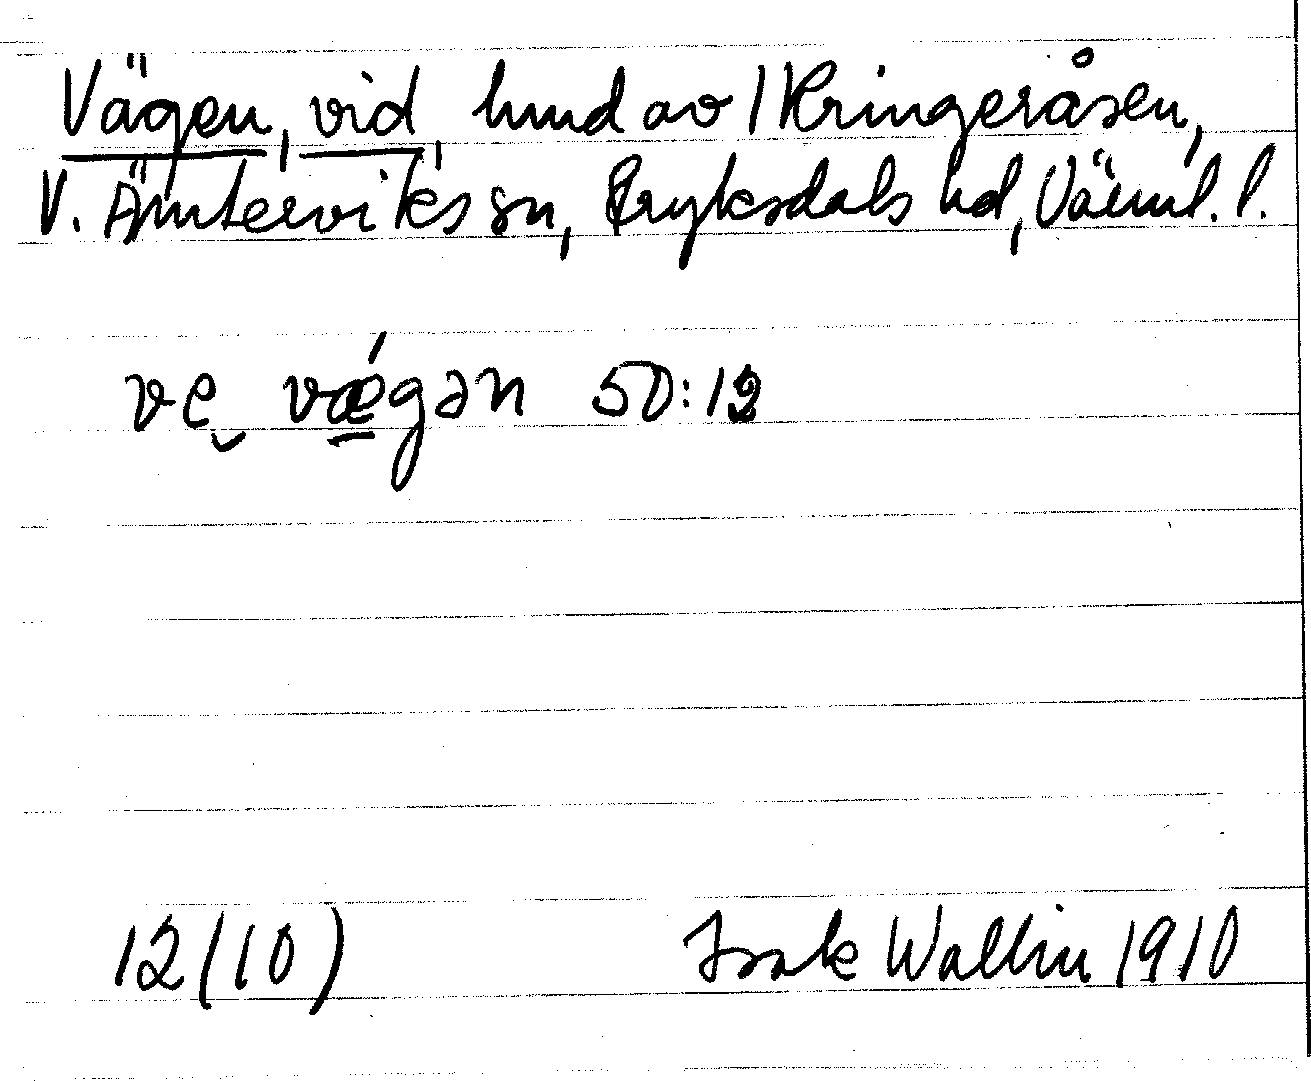 Vägen, vid, hmd av 1 Kringeråsen,
V. Ämterviks sn, Fryksdals hd, Värml. l.
ve̮ vǽ̱gən 50:12
12(10) Isak Wallin 1910